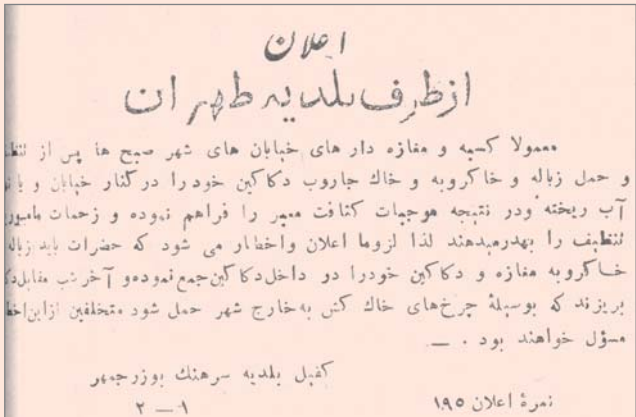 اعلان
از طرف بلدیه طهران
معمولا کسبه و مغازه دار های خیابان های شهر صبح ها پس از
و حمل زباله و خاکروبه و خاك جاروب دکاکین خودرا در کنار خیابان و یا
آب ریخته ودر نتیجه موجبات کثافت معبر را فراهم نموده و زحمات
تنظیف را بهدر میدهند لذا لزوما اعلان و اخطار می شود که حضرات باید زباله
خاکروبه مغازه و دکاکین خودرا در داخل دکاکین جمع نموده و آخر شب مقابل
بریزند که بوسیلۀ چرخ‌های خاك کش به خارج شهر حمل شود متخلفین از این
مسؤل خواهند بود . —
کفیل بلدیه سرهنك بوزرجمهر
نمرۀ اعلان ۱۹۵
۱ — ۲